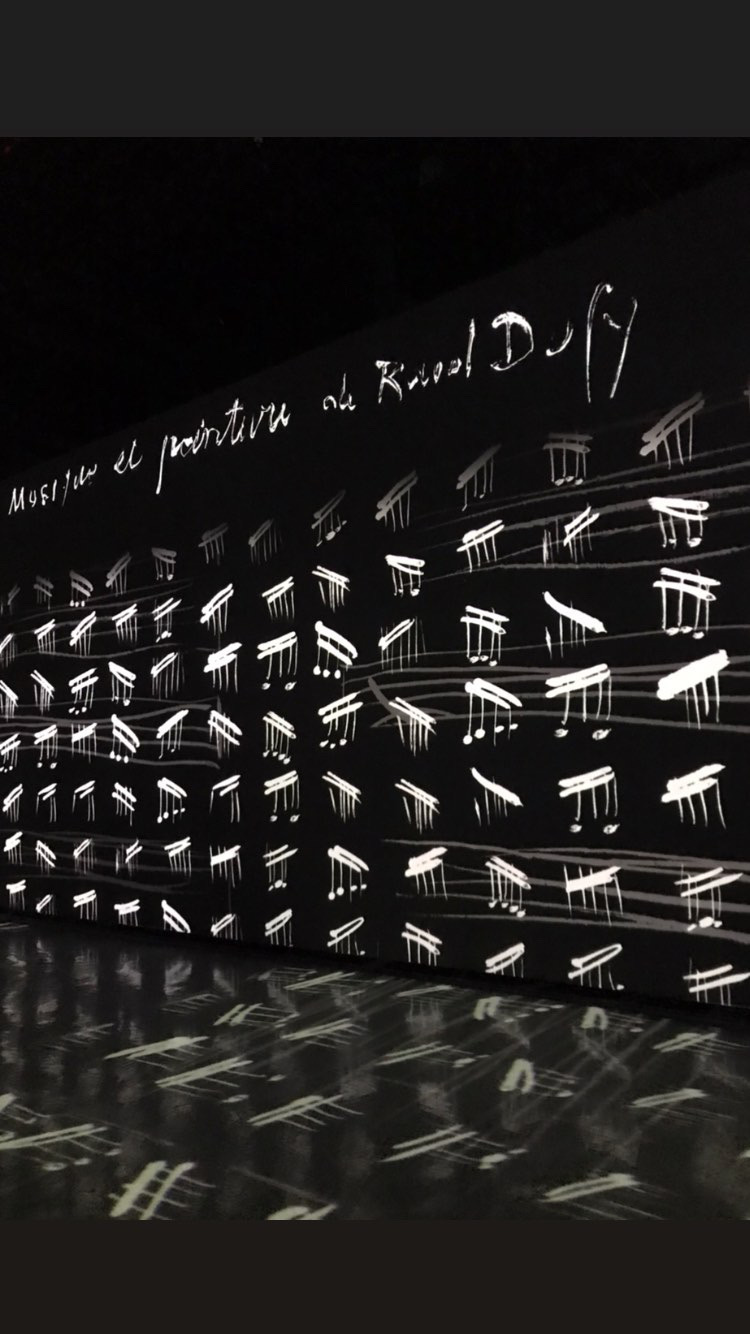 Musique et peinture de Raoul Dufy